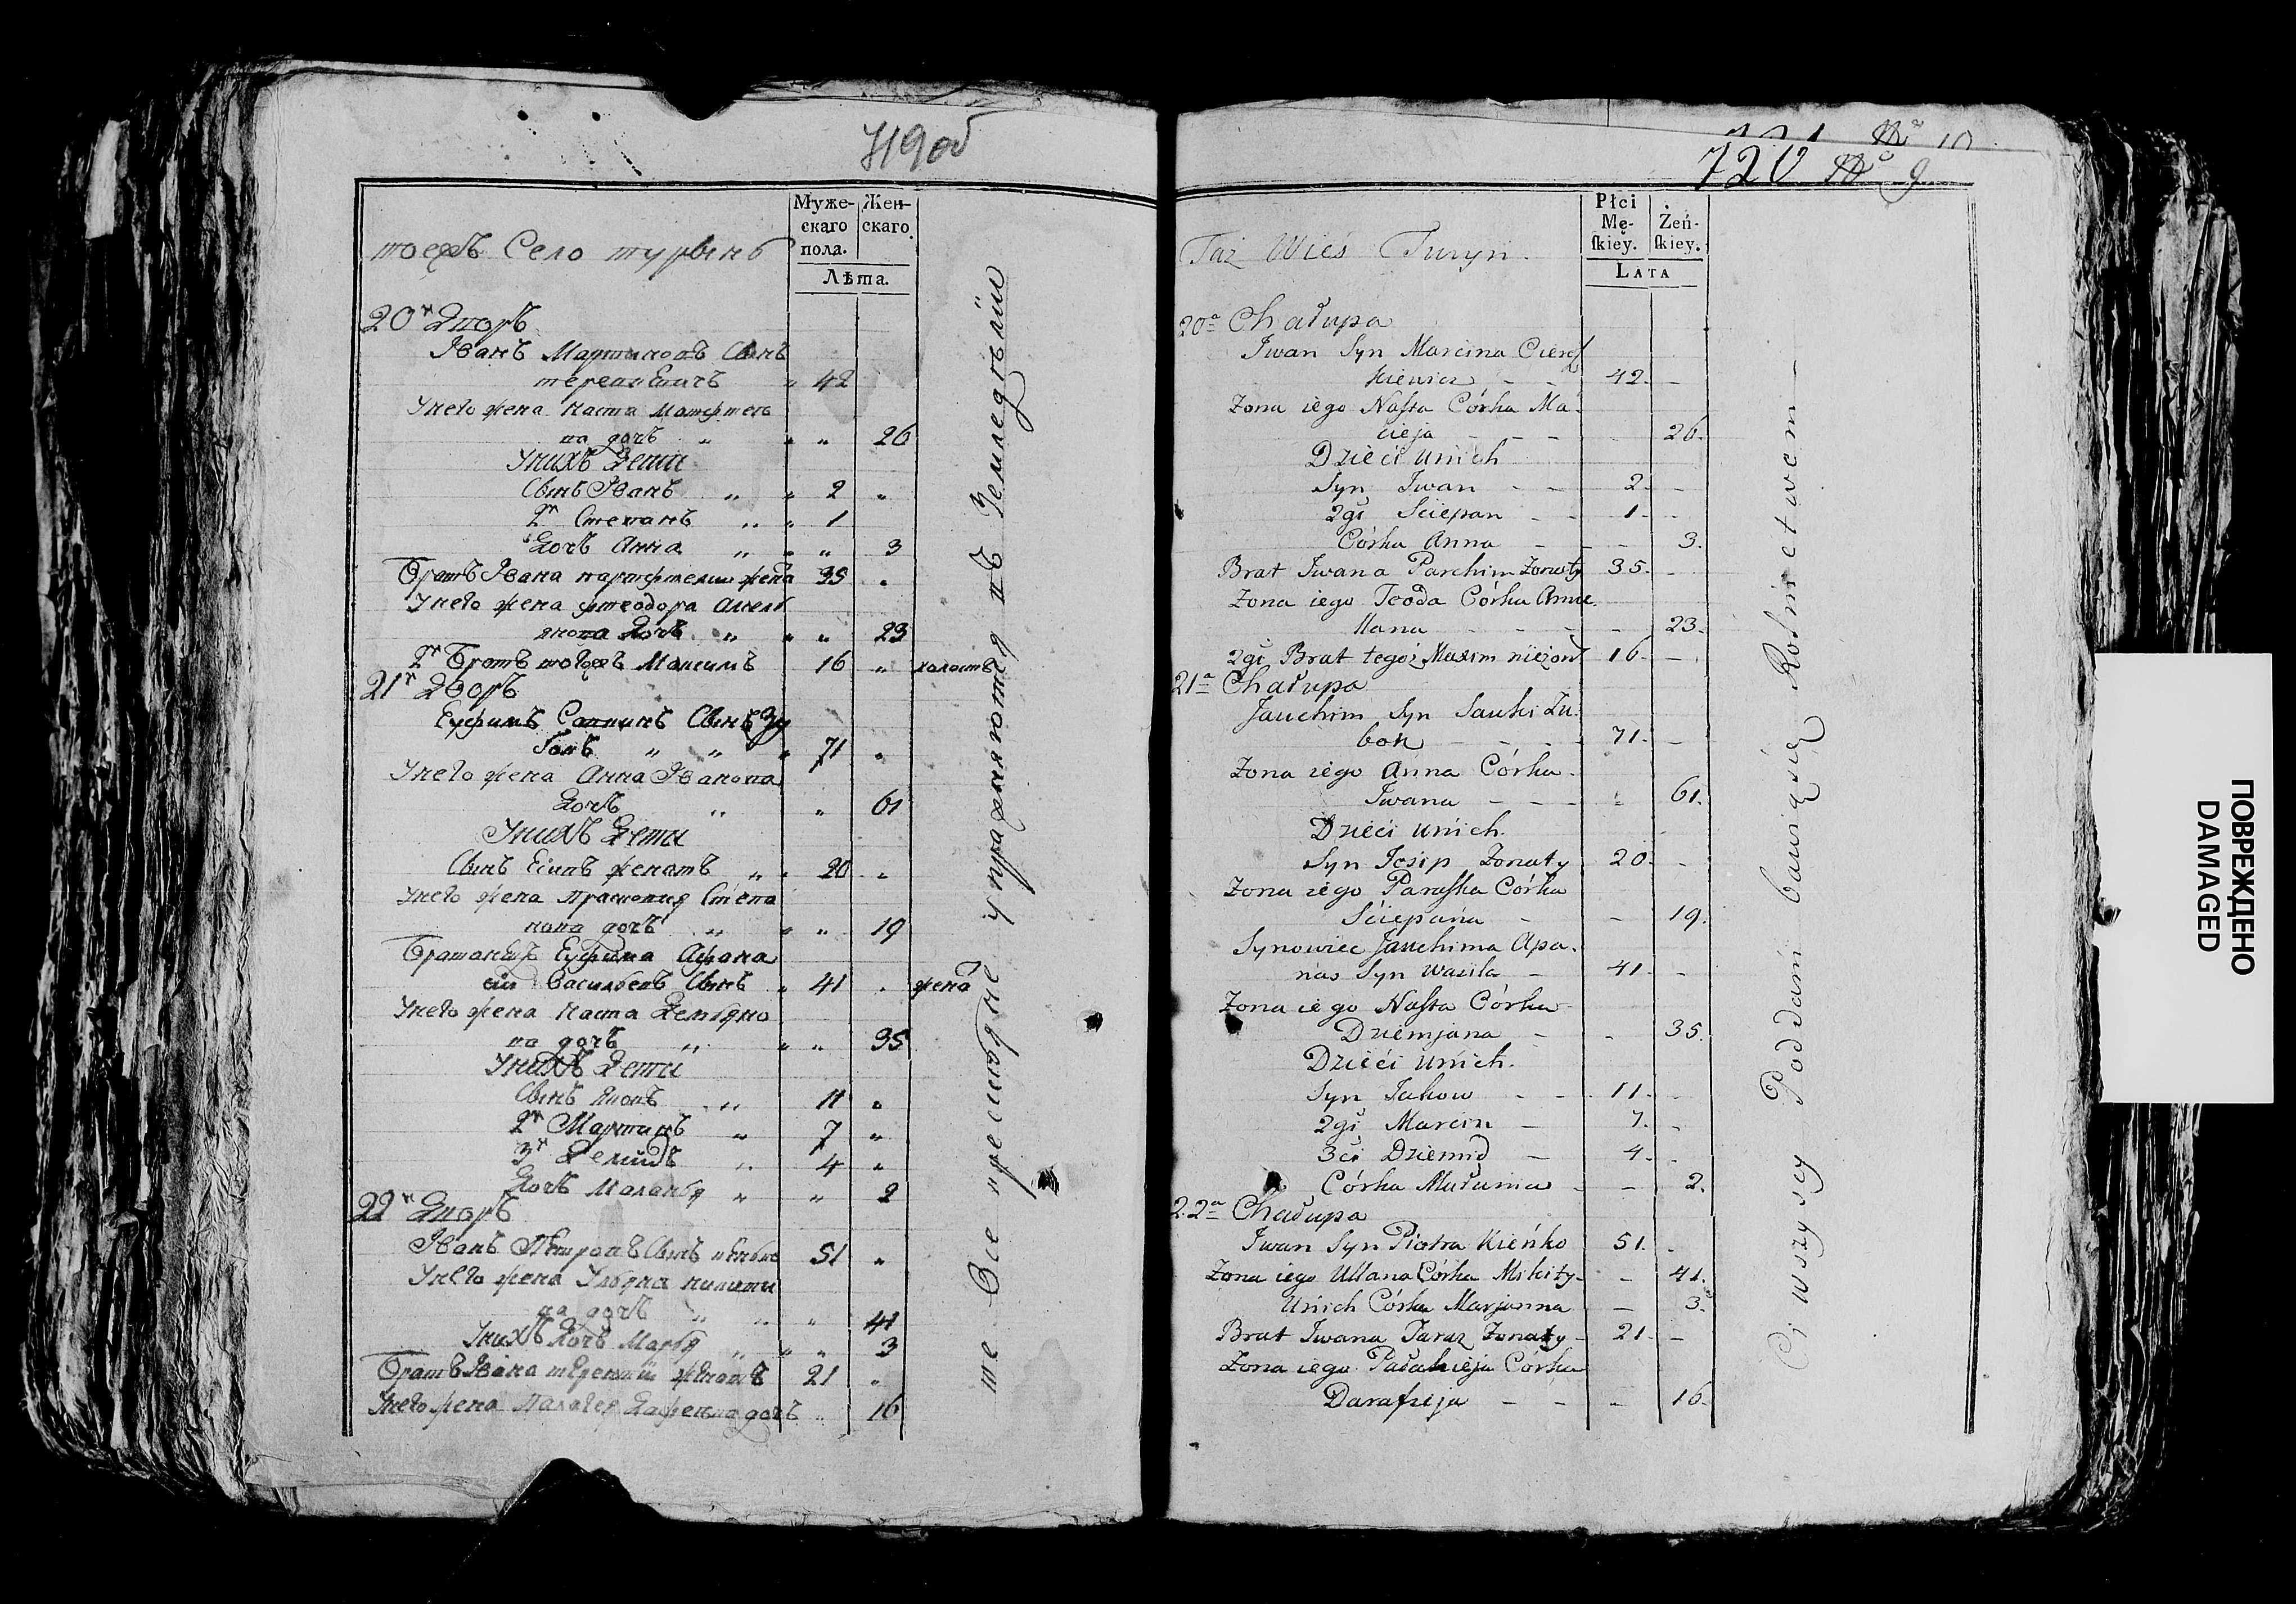 719 об
Муже-
скаго
пола.
Жен-
скаго.
Лѣта.
тоежъ Село турынъ
20й Дворъ
Іванъ Мартиновъ Сынъ
терешкевичъ " 42
Унего жена Наста Матфеева
дочь " " " 26
Унихъ Дети
Сынъ Іванъ " " 2 "
2й Степанъ " " 1
Дочь Анна " " " 3
Братъ Івана парфтелии жена 35 "
Унего жена фтеодора Амель
янова Дочь " " " 23
2й Братъ тогожъ Максимъ 16 " холостъ
21й Дворъ
Ефимъ Савинъ Сынъ Зу
бокъ " " " 71 "
Унего жена Анна Іванова
Дочь " " 61
Унихъ Дети
Сынъ Есипъ женатъ " " 20 "
Унего жена Прасковия Степа
нова дочь " " " 19
Братаничъ Ефима Афана
сий Васильевъ Сынъ " 41 " жена
Унего жена Наста Демяно
ва дочь " " " 35
Унихъ Дети
Сынъ Яковъ " 11 "
2й Мартинъ " 7 "
3й Демидъ " 4 "
Дочь Маланья " " 2
22й Дворъ
Іванъ Петровъ Сынъ 51 "
Унего жена Ульяна никити
на дочь " " " 41
Унихъ Дочь Марья " " " 3
Братъ Івана терентий женатъ 21 "
Унего жена Палагея дочь " 16
те Все крестьяне упражняются въ Земледелии
720 № 9
№ 10
Płci
Mę-
ſkiey.
Żeń-
ſkiey.
Lata
Taż Wieś Turyn.
20a Chałupa
Iwan Syn Marcina Ciereſz
kiewicz - - 42. -
Zona iego Naſta Córka Ma-
cieja - - - - 26.
Dzieći unich
Syn Iwan - - 2. -
2gi Sciepan - - 1. -
Córka Anna - - - 3.
Brat Iwana Parchim Zonaty 35. -
Zona iego Teoda Córka Amie
liana - - - - 23.
2gi Brat tegoż Maxim nieżon 16. -
21a Chałupa
Jauchim Syn Sauki Zu-
bok - - - 71. -
Zona iego Anna Córka
Iwana - - - - 61.
Dzieći unich.
Syn Josip Zonaty 20. -
Zona iego Paraſka Córka
Sciepana - - 19.
Synowiec Jauchima Apa-
nas Syn Wasila - 41. -
Zona iego Naſta Córka
Dziemjana - - 35.
Dzieći unich.
Syn Jakow - - 11. -
2gi Marcin - 7. -
3ci Dziemid - 4. -
Córka Małania - - 2.
22a Chałupa
Iwan Syn Piotra Kieńko 51. -
Zona iego Ullana Córka Mikity - - 41.
Unich Córka Marjanna - 3.
Brat Iwana Taraz Zonaty - 21. -
Zona iego Pałahieja Córka
Darafieja - - - 16.
Ci wszyscy Poddani bawią się Rolnictwem
ПОВРЕЖДЕНО
DAMAGED